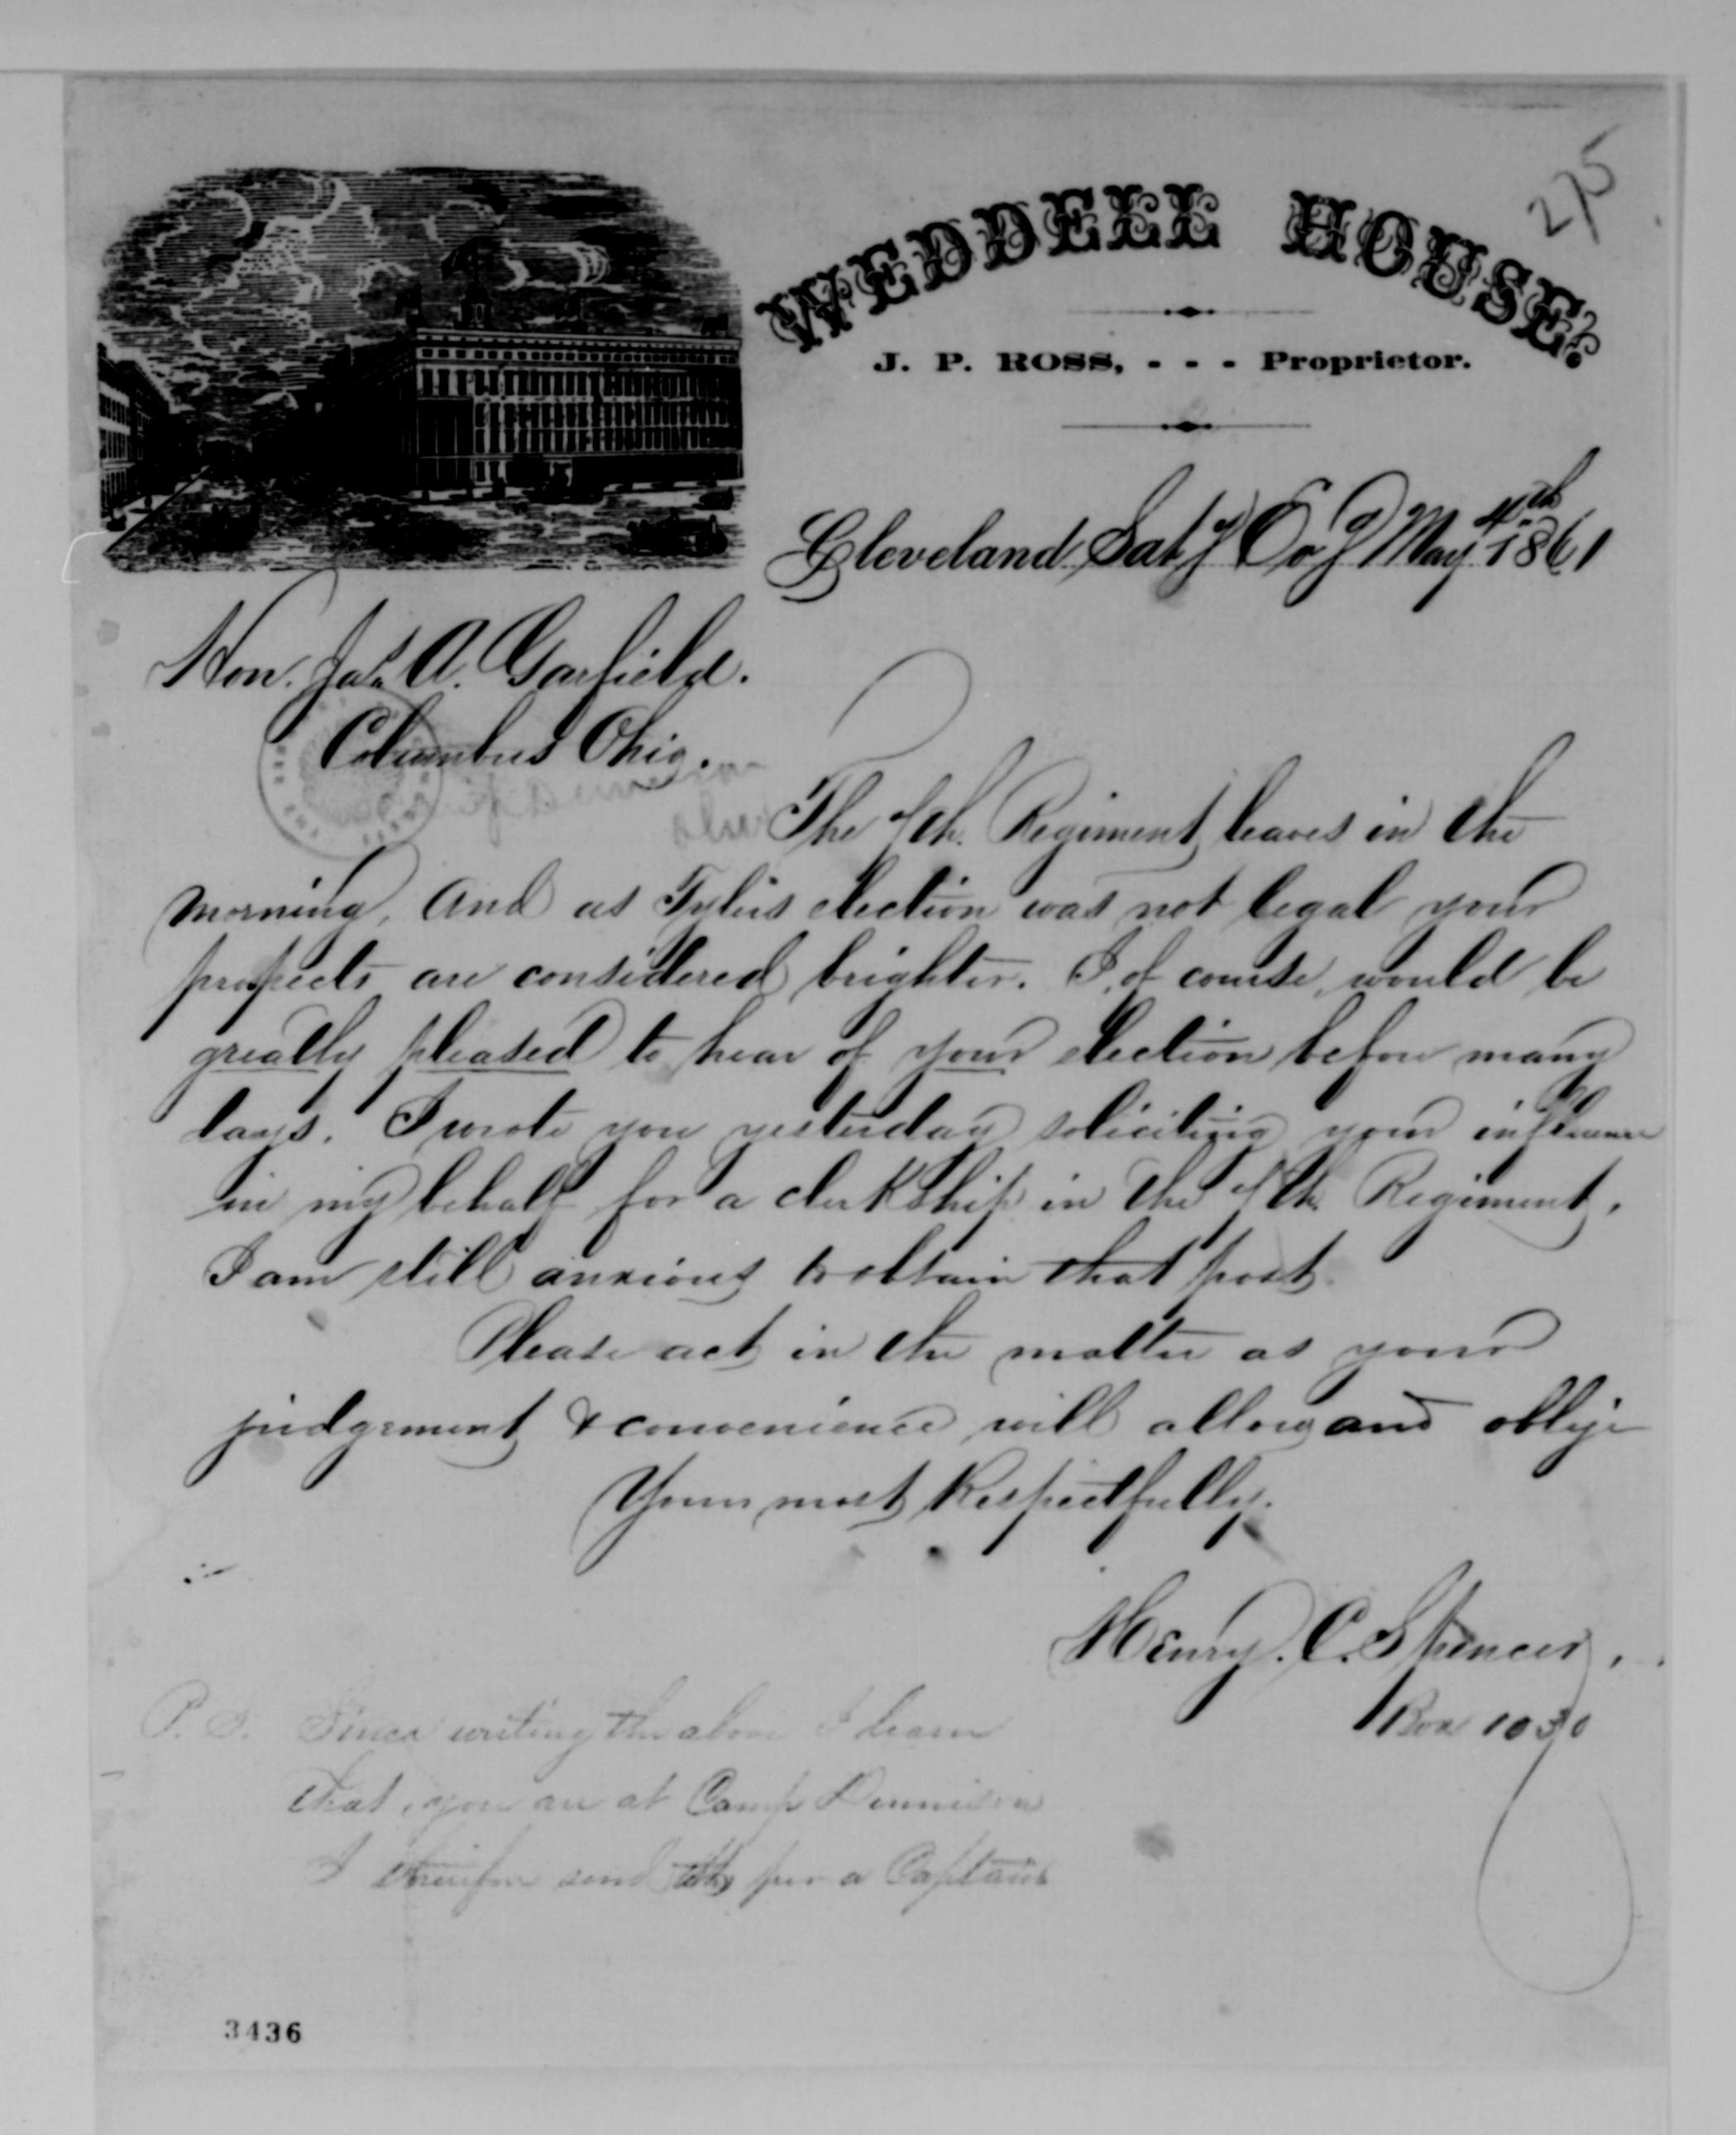 275
WEDDELL HOUSE.
J. P. ROSS, - - - Proprietor.
Cleveland, Sat'y Ev'g May 4th 1861
Hon. Jas. A. Garfield.
Columbus Ohio.
The 7th. Regiment leaves in the
morning, And as Tylers election was not legal your
prospects are considered brighter. I, of course, would be
greatly pleased to hear of your election before many
days. I wrote you yesterday soliciting your influence
in my behalf for a clerkship in the 7th. Regiment.
I am still anxious to obtain that post.
Please act in the matter as your
judgement & convenience will allow and oblige
Yours most Respectfully.
Henry. C. Spencer.
Box 1030
P. S. Since writing the above I learn
that, you are at Camp Dennison
I therefore send this per a Captain
3436